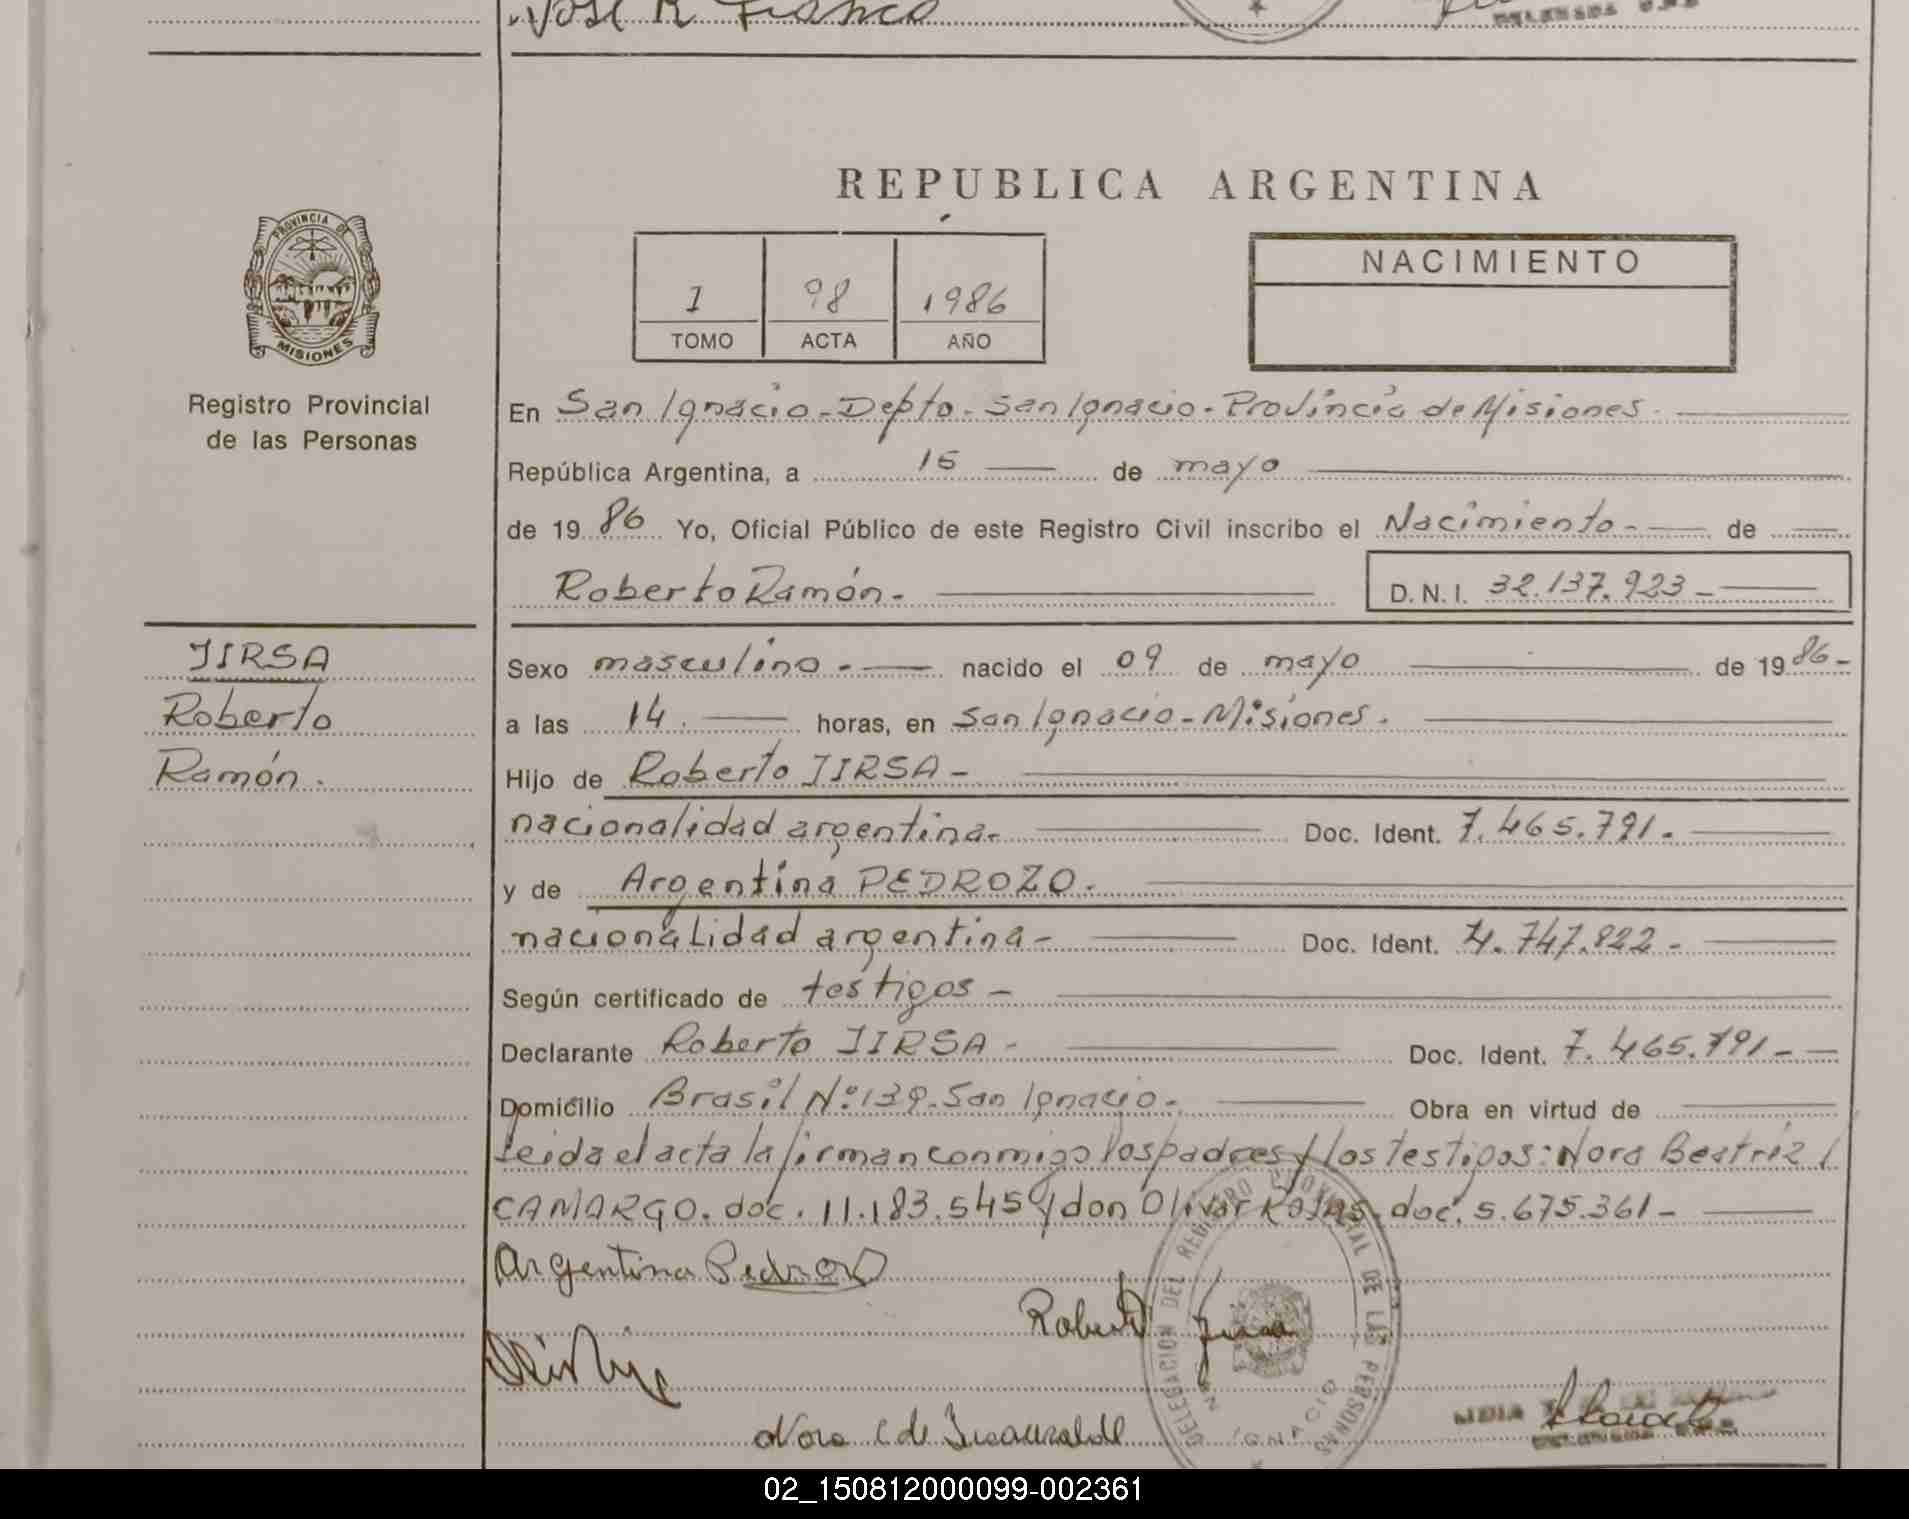 José R Franco
REPUBLICA ARGENTINA
PROVINCIA DE
MISIONES
Registro Provincial
de las Personas
1 98 1986
TOMO ACTA AÑO
NACIMIENTO
En San Ignacio - Depto. San Ignacio - Provincia de Misiones.
República Argentina, a 15 de mayo
de 1986 Yo, Oficial Público de este Registro Civil inscribo el Nacimiento - de
Roberto Ramón - D. N. I. 32.137.923 -
JIRSA
Roberto
Ramón.
Sexo masculino - nacido el 09 de mayo de 1986 -
a las 14. horas, en San Ignacio - Misiones.
Hijo de Roberto JIRSA -
nacionalidad argentina - Doc. Ident. 7.465.791 -
y de Argentina PEDROZO.
nacionalidad argentina - Doc. Ident. 4.747.822 -
Según certificado de testigos -
Declarante Roberto JIRSA - Doc. Ident. 7.465.791 -
Domicilio Brasil Nº 139 - San Ignacio - Obra en virtud de
Leida el acta la firman conmigo los padres y los testigos: Nora Beatriz
CAMARGO. doc. 11.183.545 y don Olivar Rojas. doc. 5.675.361 -
Argentina Pedrozo
Roberto Jirsa
Nora C de Insaurralde
DELEGACION DEL REGISTRO PROVINCIAL DE LAS PERSONAS
SAN IGNACIO
LIDIA
02_150812000099-002361